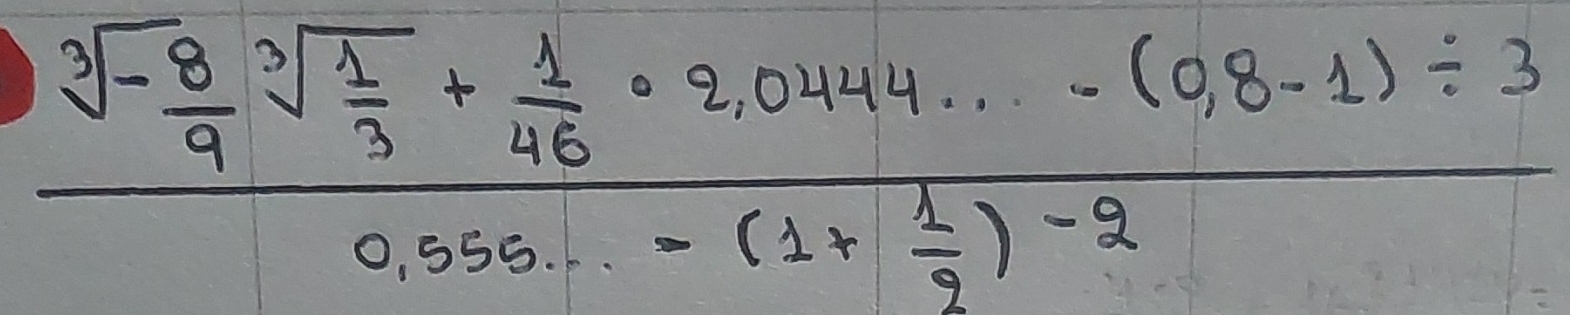 ∛-8/9 ∛1/3 + 1/46 • 2,0444... - (0,8-1) ÷ 3
0,555... - (1+1/2)⁻²